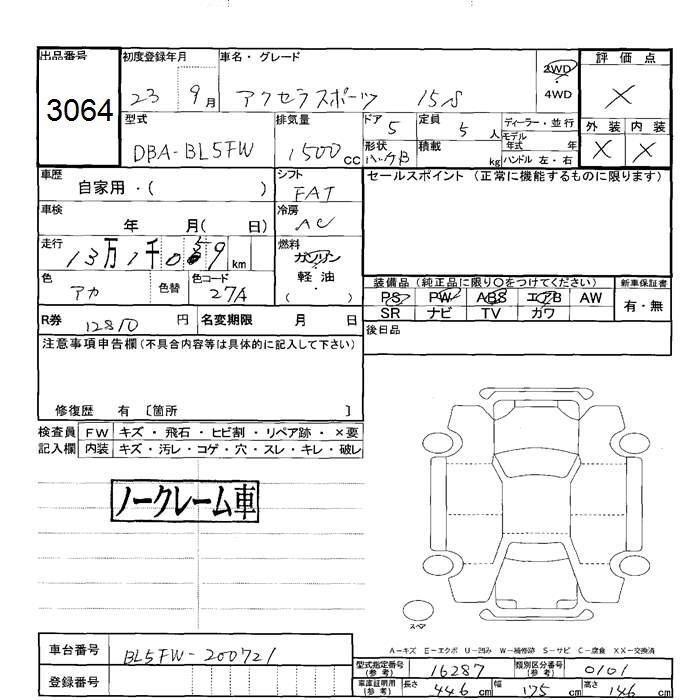 出品番号 初度登録年月 車名・グレード 評価点
3064 23 9月 アクセラスポーツ 15S 2WD 4WD X
外装 内装
X X
型式 排気量 ドア 5 定員 5人 ディーラー・並行
DBA-BL5FW 1500cc 形状 積載 kg モデル年式 年
ハンドル 左・右
車歴 シフト セールスポイント (正常に機能するものに限ります)
自家用・( ) FAT
車検 冷房
年 月( 日) AC
走行 燃料
13万1千0 9km ガソリン
軽・油
( )
色 色替 色コード
アカ 27A
装備品 (純正品に限り○をつけてください) 新車保証書
PS PW ABS エアB AW 有・無
SR ナビ TV カワ
R券 12810円 名変期限 月 日 後日品
注意事項申告欄(不具合内容等は具体的に記入して下さい)
修復歴 有 [箇所 ]
検査員 FW キズ・飛石・ヒビ割・リペア跡・×要
記入欄 内装 キズ・汚レ・コゲ・穴・スレ・キレ・破レ
ノークレーム車
スペア
A-キズ E-エクボ U-凹み W-補修跡 S-サビ C-腐食 XX-交換済
車台番号 BL5FW-200721
登録番号
型式指定番号(参考) 16287 類別区分番号(参考) 0101
車庫証明用(参考) 長さ 446cm 幅 175cm 高さ 146cm